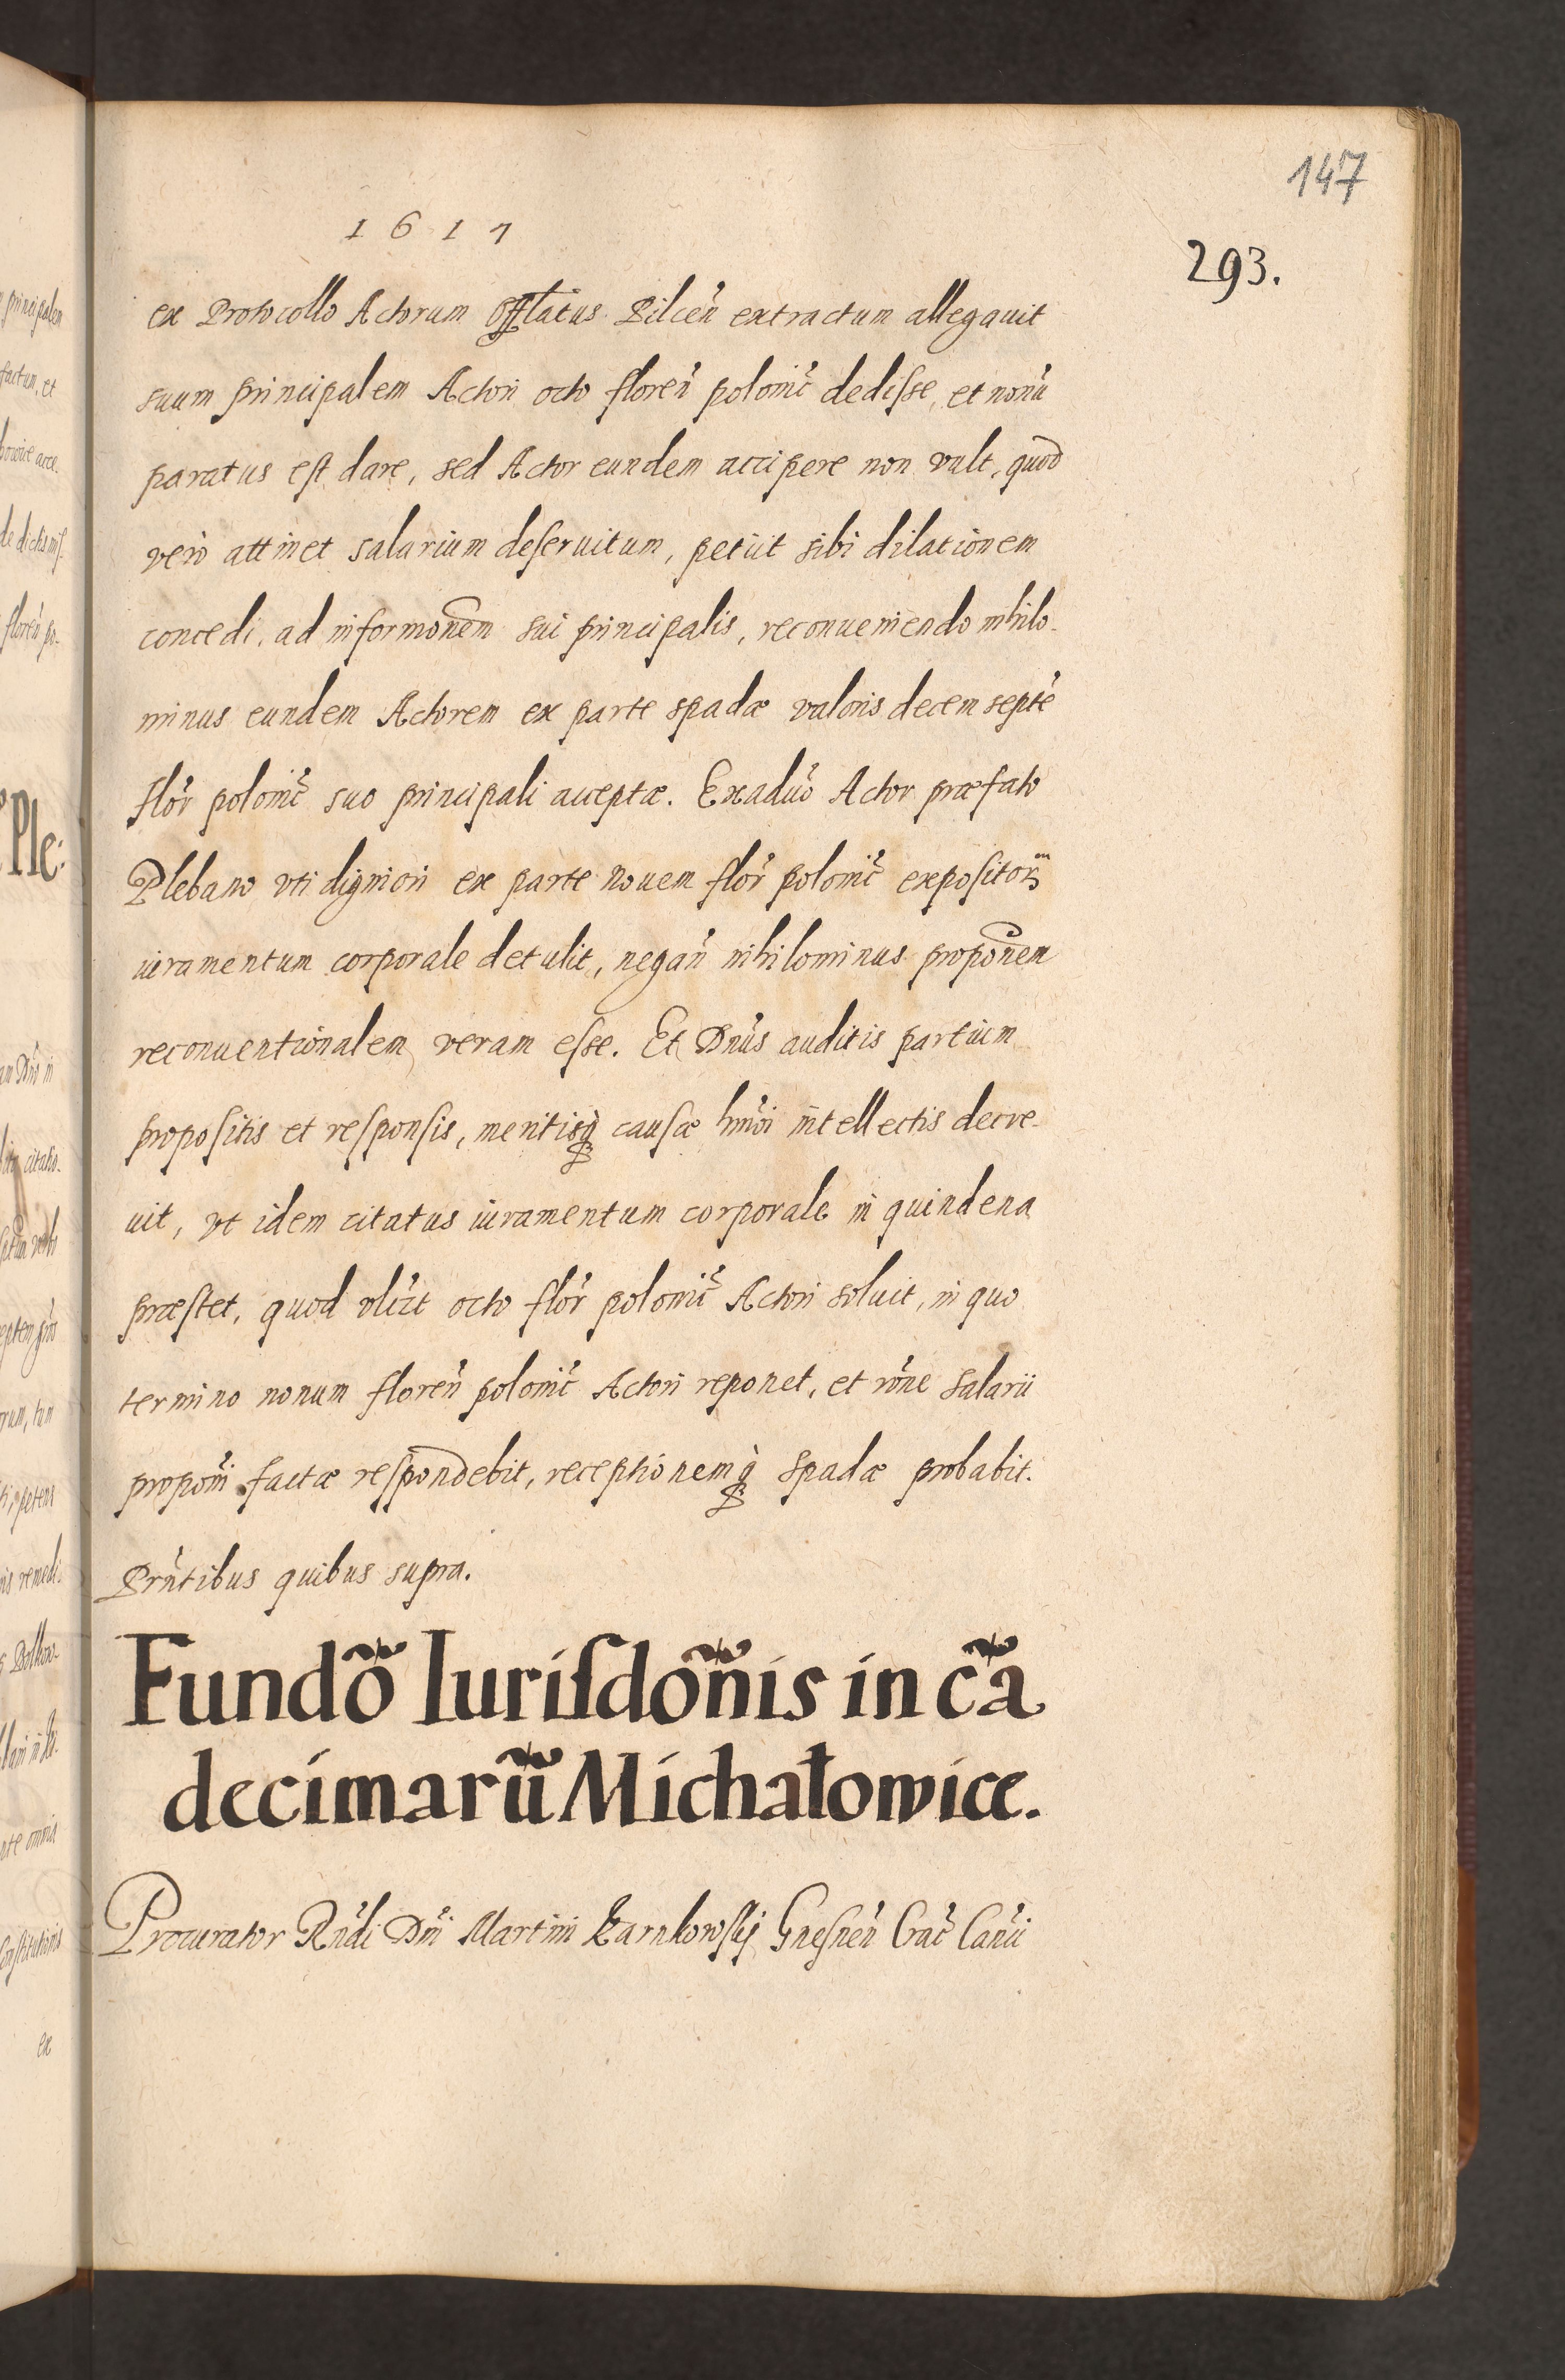 147
1617
293.
ex Protocollo Actorum Offlatus Pilceñ extractum allegauit
suum principalem Actori octo floreñ polonic̃ dedisse, et nonũ
paratus est dare, sed Actor eundem accipere non vult, quod
verò attinet salarium deseruitum, petiit sibi dilationem
concedi, ad informoñem sui principalis, reconueniendo nihilo-
minus eundem Actorem ex parte spadæ valoris decem septẽ
flor̃ polonic̃ suo principali acceptæ. Exaduõ Actor præfato
Plebano vti digniori ex parte nouem flor̃ polonic̃ expositor̃
iuramentum corporale detulit, negañ nihilominus propoñem
reconuentionalem veram esse. Et Dñus auditis partium
propositis et responsis, meritisq̃ causæ hmõi intellectis decre-
uit, vt idem citatus iuramentum corporale in quindena
præstet, quod vlic̃t octo flor̃ polonic̃ Actori soluit, in quo
termino nonum floreñ polonic̃ Actori reponet, et rõne salarii
propoñi factæ respondebit, receptionemq̃ spadæ probabit.
Prñtibus quibus supra.
Fundõ Iurisdoñis in cã
decimarũ Michałowice.
Procurator Rñdi Dñi Martini Karnkowskij Gnesneñ Crac̃ Canci
ex